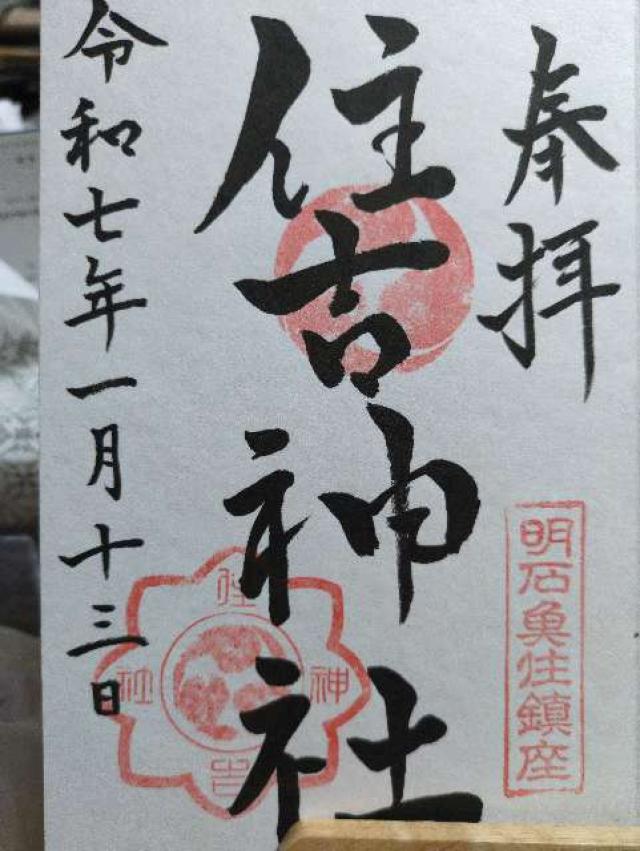 奉拝
明石魚住鎮座
住吉神社
住吉神社
令和七年一月十三日